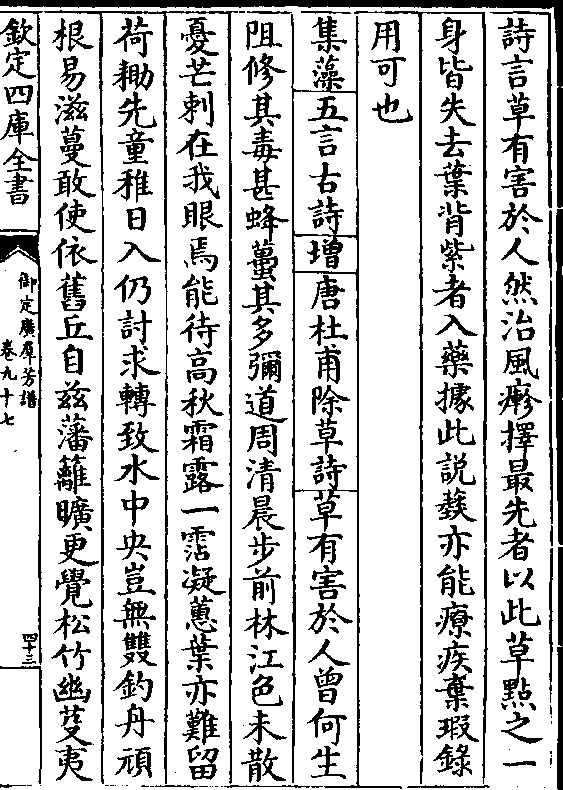 詩言草有害於人然治風瘮擇最先者以此草點之一
身皆失去葉背紫者入藥據此説䔾亦能療疾棄瑕錄
用可也
集藻五言古詩增唐杜甫除草詩草有害於人曾何生
阻修其毒甚蜂蠆其多彌道周清晨步前林江色未散
憂芒刺在我眼焉能待高秋霜露一霑凝蕙葉亦難留
荷鋤先童稚日入仍討求轉致水中央豈無雙釣舟頑
根易滋蔓敢使依舊丘自兹藩籬曠更覺松竹幽芟夷
欽定四庫全書
御定廣羣芳譜
卷九十七
四十三